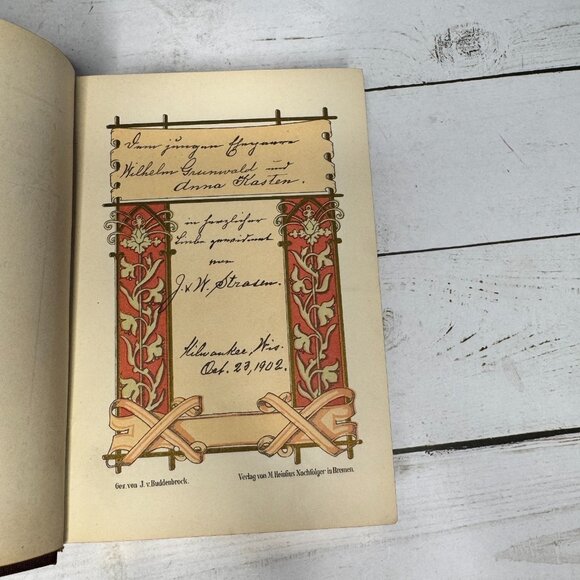 Dem jungen Ehepaare
Wilhelm Grunwald und
Anna Kasten.
in herzlicher
Liebe gewidmet
von
J. & W. Strasen.
Milwaukee, Wis.
Oct. 23, 1902.
Gez. von J. v. Buddenbrock.
Verlag von M. Heinsius Nachfolger in Bremen.